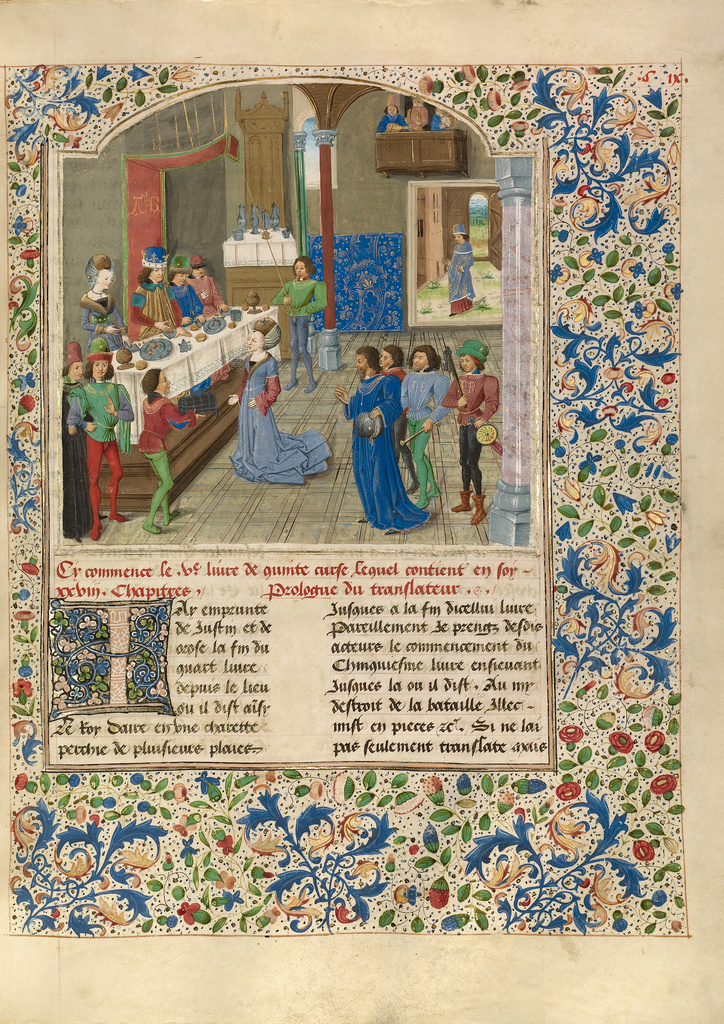 .S. IX.
Cy commence le .Ve. liure de quinte curse, lequel contient en soy
xxviii. Chapitres. Prologue du translateur.
Iay emprunte
de Justin et de
orose la fin du
quart liure
depuis le lieu
ou il dist aisy
Le Roy Daire en vne charette
perchie de pluisieurs plaies
Jusques a la fin dicellui liure
Pareillement Je prengz desdis
acteurs le commencement du
Chinquiesme liure ensieuant
Jusques la ou il dist. Au my
destroit de la bataille, Illec-
mist en pieces zc. Si ne lai
pas seulement translate mais